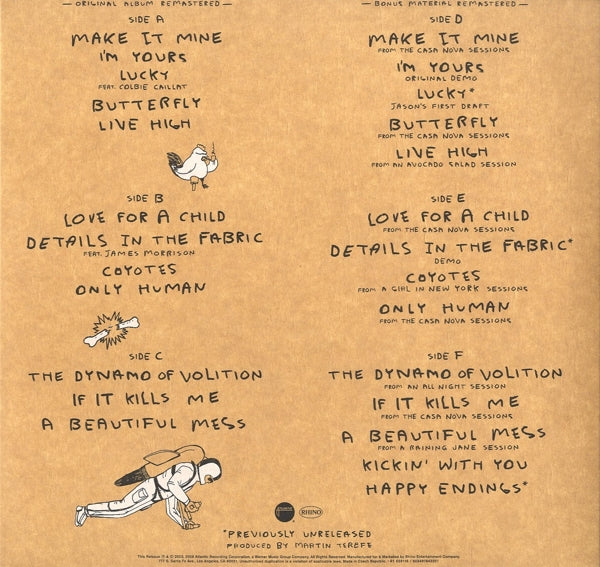 — ORIGINAL ALBUM REMASTERED —
SIDE A
MAKE IT MINE
I'M YOURS
LUCKY
FEAT. COLBIE CAILLAT
BUTTERFLY
LIVE HIGH
SIDE B
LOVE FOR A CHILD
DETAILS IN THE FABRIC
FEAT. JAMES MORRISON
COYOTES
ONLY HUMAN
SIDE C
THE DYNAMO OF VOLITION
IF IT KILLS ME
A BEAUTIFUL MESS
— BONUS MATERIAL REMASTERED —
SIDE D
MAKE IT MINE
FROM THE CASA NOVA SESSIONS
I'M YOURS
ORIGINAL DEMO
LUCKY*
JASON'S FIRST DRAFT
BUTTERFLY
FROM THE CASA NOVA SESSIONS
LIVE HIGH
FROM AN AVOCADO SALAD SESSION
SIDE E
LOVE FOR A CHILD
FROM THE CASA NOVA SESSIONS
DETAILS IN THE FABRIC*
DEMO
COYOTES
FROM A GIRL IN NEW YORK SESSIONS
ONLY HUMAN
FROM THE CASA NOVA SESSIONS
SIDE F
THE DYNAMO OF VOLITION
FROM AN ALL NIGHT SESSION
IF IT KILLS ME
FROM THE CASA NOVA SESSIONS
A BEAUTIFUL MESS
FROM A RAINING JANE SESSION
KICKIN' WITH YOU
HAPPY ENDINGS*
RHINO
*PREVIOUSLY UNRELEASED
PRODUCED BY MARTIN TEREFE
This Release ℗ & © 2008, Atlantic Recording Corporation, a Warner Music Group Company. All Rights Reserved. Manufactured for & Marketed by Rhino Entertainment Company,
777 S. Santa Fe Ave., Los Angeles, CA 90021. Unauthorized duplication is a violation of applicable laws. Made in Czech Republic.